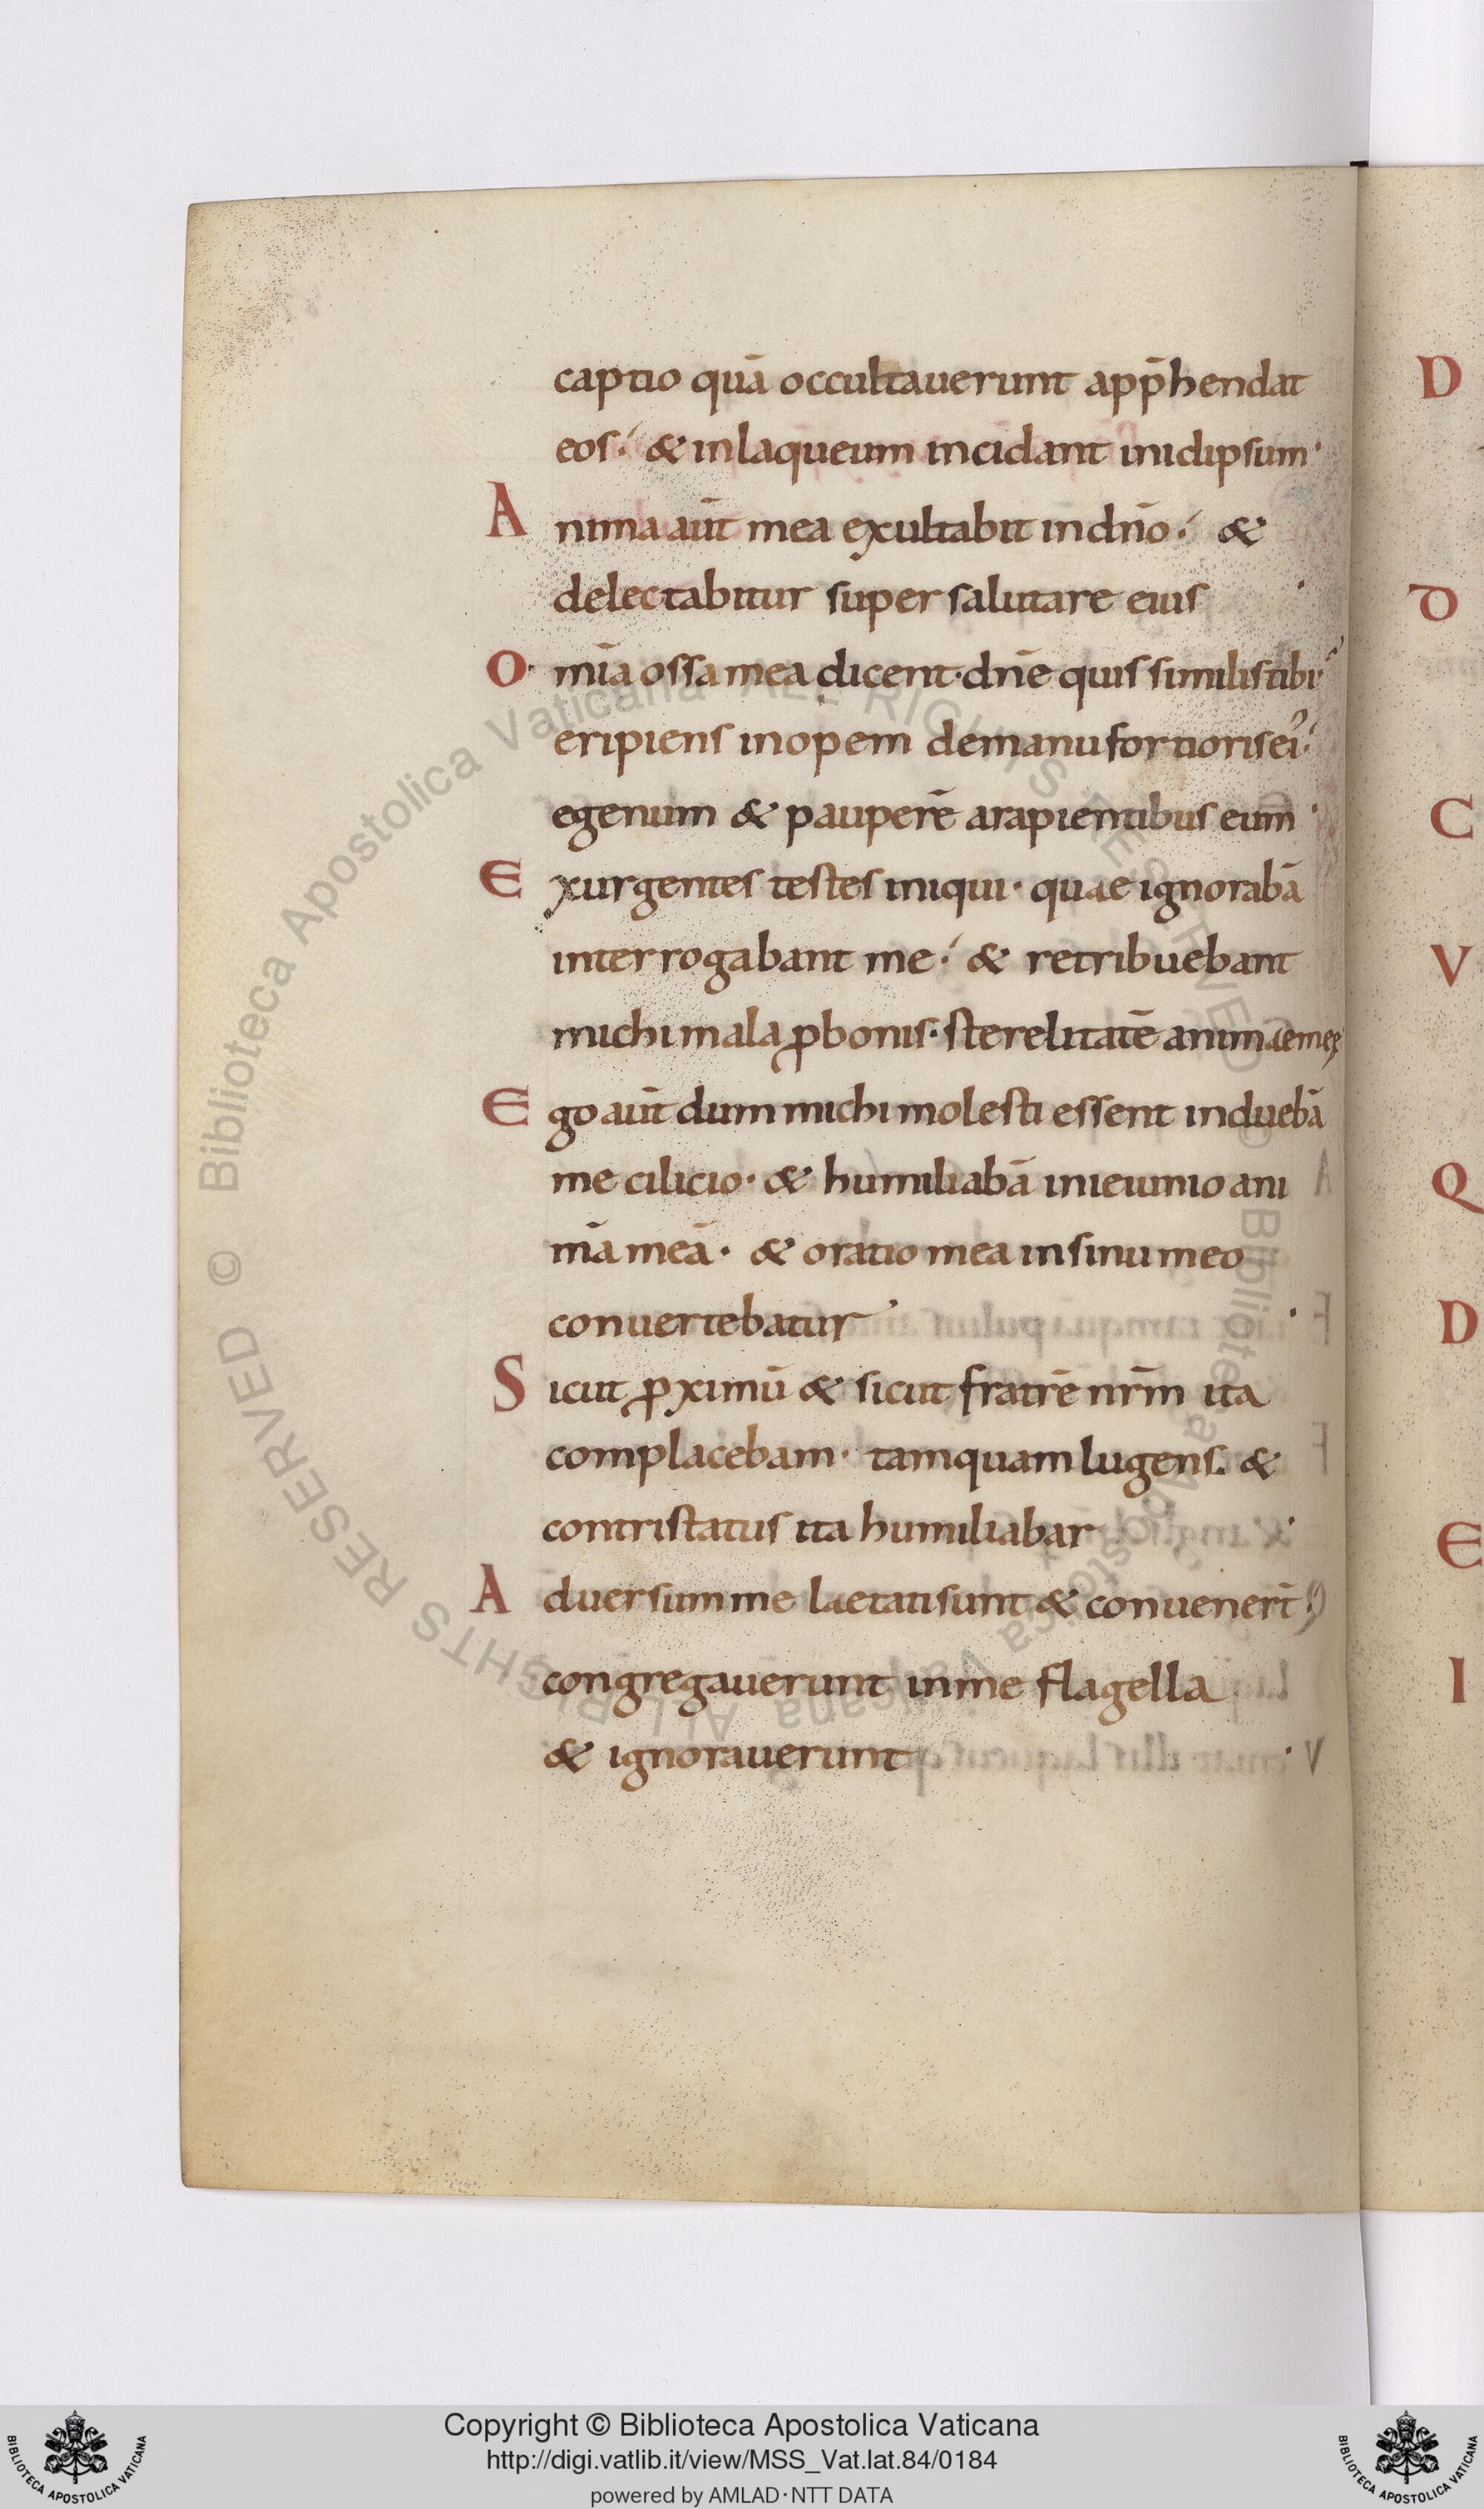 captio quā occultauerunt app̄hendat
eos· & inlaqueum incidant inidipsum·
A nima aūt mea exultabit indn̄o· &
delectabitur super salutare eius ·
O· mīa ossa mea dicent· dn̄e quis similis tibi
eripiens inopem demanu fortioris ei᾽
egenum & pauperē arapientibus eum ·
E xurgentes testes iniqui· quae ignorabā
interrogabant me· & retribuebant
michi mala ꝓbonis· sterelitatē animae meę
E go aūt dum michi molesti essent induebā
me cilicio· & humiliabā inieiunio ani
mā meā· & oratio mea insinu meo
conuertebatur ·
S icut ꝓximū & sicut fratrē nr̄m ita
complacebam· tamquam lugens. &
contristatus ita humiliabar ·
A duersum me laetati sunt & conuener̄t
congregauerunt inme flagella
& ignorauerunt ·
D
D
C
V
Q
D
E
I
© Biblioteca Apostolica Vaticana ALL RIGHTS RESERVED © Biblioteca Apostolica Vaticana ALL RIGHTS RESERVED
BIBLIOTECA APOSTOLICA VATICANA
Copyright © Biblioteca Apostolica Vaticana
http://digi.vatlib.it/view/MSS_Vat.lat.84/0184
powered by AMLAD·NTT DATA
BIBLIOTECA APOSTOLICA VATICANA